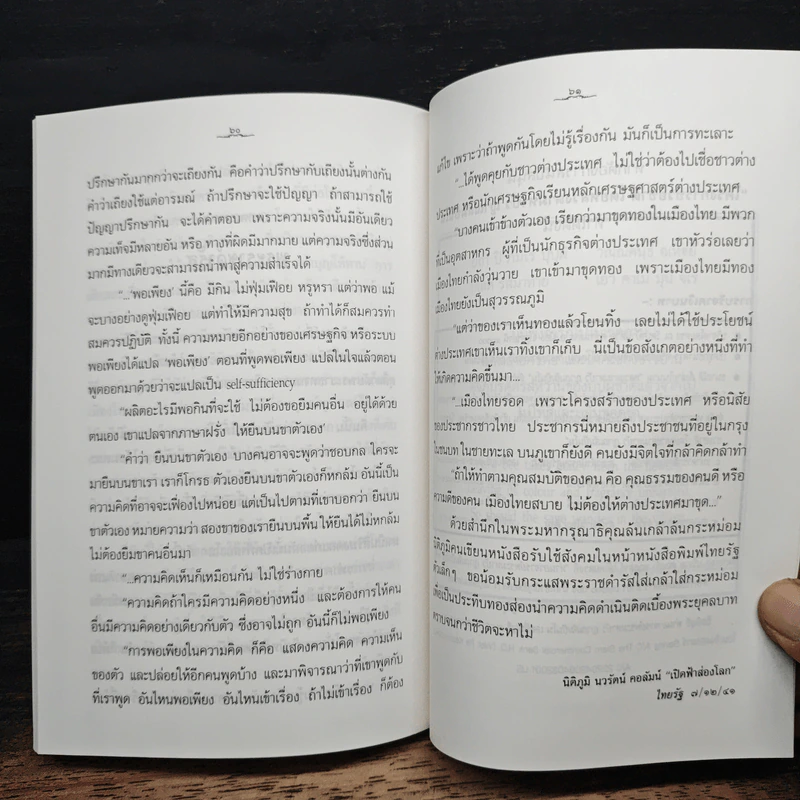 ๖๐
ปรึกษากันมากกว่าจะเถียงกัน คือคำว่าปรึกษากับเถียงนั้นต่างกัน
คำว่าเถียงใช้แต่อารมณ์ ถ้าปรึกษาจะใช้ปัญญา ถ้าสามารถใช้
ปัญญาปรึกษากัน จะได้คำตอบ เพราะความจริงนั้นมีอันเดียว
ความเท็จมีหลายอัน หรือ ทางที่ผิดมีมากมาย แต่ความจริงซึ่งส่วน
มากมีทางเดียวจะสามารถนำพาสู่ความสำเร็จได้
“...‘พอเพียง’ นี้คือ มีกิน ไม่ฟุ่มเฟือย หรูหรา แต่ว่าพอ แม้
จะบางอย่างดูฟุ่มเฟือย แต่ทำให้มีความสุข ถ้าทำได้ก็สมควรทำ
สมควรปฏิบัติ ทั้งนี้ ความหมายอีกอย่างของเศรษฐกิจ หรือระบบ
พอเพียงได้แปล ‘พอเพียง’ ตอนที่พูดพอเพียง แปลในใจแล้วตอน
พูดออกมาด้วยว่าจะแปลเป็น self-sufficiency
“ผลิตอะไรมีพอกินที่จะใช้ ไม่ต้องขอยืมคนอื่น อยู่ได้ด้วย
ตนเอง เขาแปลจากภาษาฝรั่ง ให้ยืนบนขาตัวเอง’
“คำว่า ยืนบนขาตัวเอง บางคนอาจจะพูดว่าชอบกล ใครจะ
มายืนบนขาเรา เราก็โกรธ ตัวเองยืนบนขาตัวเองก็หกล้ม อันนี้เป็น
ความคิดที่อาจจะเฟื่องไปหน่อย แต่เป็นไปตามที่เขาบอกว่า ยืนบน
ขาตัวเอง หมายความว่า สองขาของเรายืนบนพื้น ให้ยืนได้ไม่หกล้ม
ไม่ต้องยืมขาคนอื่นมา
“...ความคิดเห็นก็เหมือนกัน ไม่ใช่ร่างกาย
“ความคิดถ้าใครมีความคิดอย่างหนึ่ง และต้องการให้คน
อื่นมีความคิดอย่างเดียวกับตัว ซึ่งอาจไม่ถูก อันนี้ก็ไม่พอเพียง
“การพอเพียงในความคิด ก็คือ แสดงความคิด ความเห็น
ของตัว และปล่อยให้อีกคนพูดบ้าง และมาพิจารณาว่าที่เขาพูดกับ
ที่เราพูด อันไหนพอเพียง อันไหนเข้าเรื่อง ถ้าไม่เข้าเรื่อง ก็ต้อง
๖๑
แก้ไข เพราะว่าถ้าพูดกันโดยไม่รู้เรื่องกัน มันก็เป็นการทะเลาะ
“...ได้พูดคุยกับชาวต่างประเทศ ไม่ใช่ว่าต้องไปเชื่อชาวต่าง
ประเทศ หรือนักเศรษฐกิจเรียนหลักเศรษฐศาสตร์ต่างประเทศ
“บางคนเข้าข้างตัวเอง เรียกว่ามาขุดทองในเมืองไทย มีพวก
ที่เป็นอุตสาหกร ผู้ที่เป็นนักธุรกิจต่างประเทศ เขาหัวร่อเลยว่า
เมืองไทยกำลังวุ่นวาย เขาเข้ามาขุดทอง เพราะเมืองไทยมีทอง
เมืองไทยยังเป็นสุวรรณภูมิ
“แต่ว่าของเราเห็นทองแล้วโยนทิ้ง เลยไม่ได้ใช้ประโยชน์
ต่างประเทศเขาเห็นเราทิ้งเขาก็เก็บ นี่เป็นข้อสังเกตอย่างหนึ่งที่ทำ
ให้เกิดความคิดขึ้นมา...
“...เมืองไทยรอด เพราะโครงสร้างของประเทศ หรือนิสัย
ของประชากรชาวไทย ประชากรนี่หมายถึงประชาชนที่อยู่ในกรุง
ในชนบท ในชายทะเล บนภูเขาก็ยังดี คนยังมีจิตใจที่กล้าคิดกล้าทำ
“ถ้าให้ทำตามคุณสมบัติของคน คือ คุณธรรมของคนดี หรือ
ความดีของคน เมืองไทยสบาย ไม่ต้องให้ต่างประเทศมาขุด...”
ด้วยสำนึกในพระมหากรุณาธิคุณล้นเกล้าล้นกระหม่อม
นิติภูมิคนเขียนหนังสือรับใช้สังคมในหน้าหนังสือพิมพ์ไทยรัฐ
ตัวเล็กๆ ขอน้อมรับกระแสพระราชดำรัสใส่เกล้าใส่กระหม่อม
เพื่อเป็นประทีปทางส่องนำความคิดดำเนินติดเบื้องพระยุคลบาท
ตราบจนกว่าชีวิตจะหาไม่
นิติภูมิ นวรัตน์ คอลัมน์ “เปิดฟ้าส่องโลก”
ไทยรัฐ ๗/๑๒/๔๑